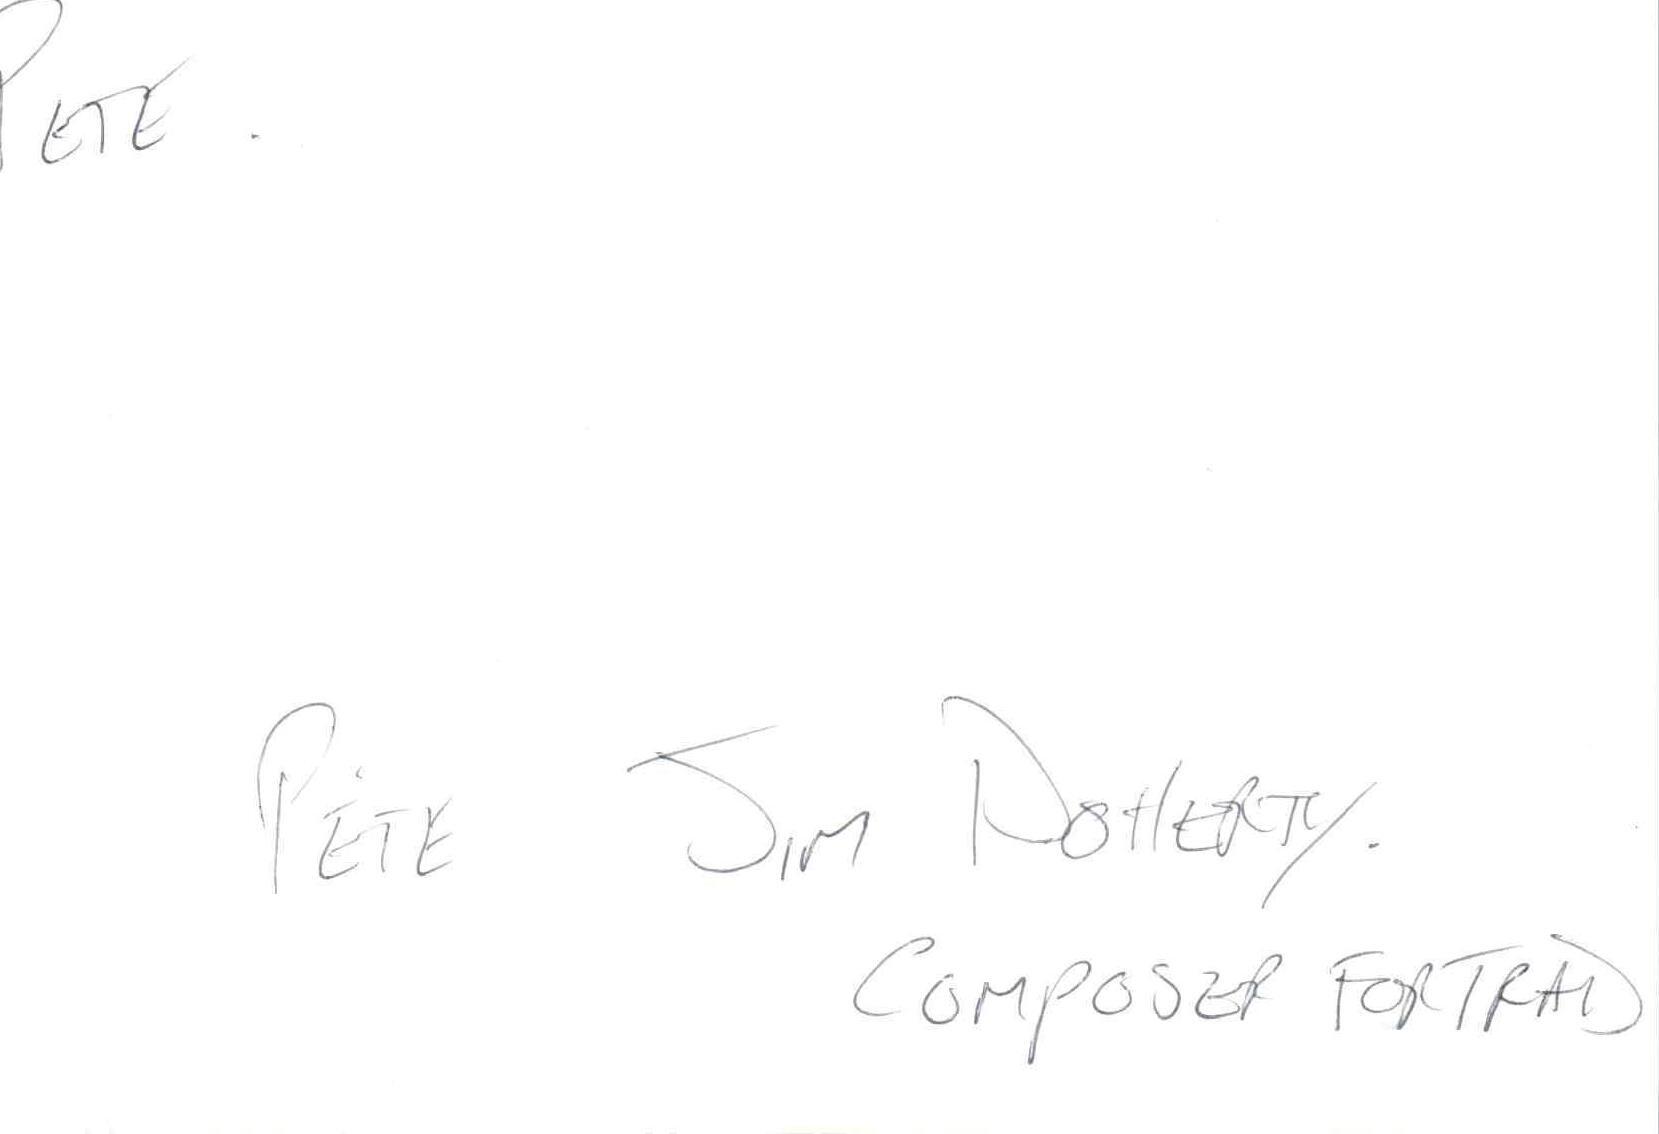 PETE.
PETE JIM DOHERTY.
COMPOSER FOR TRAD